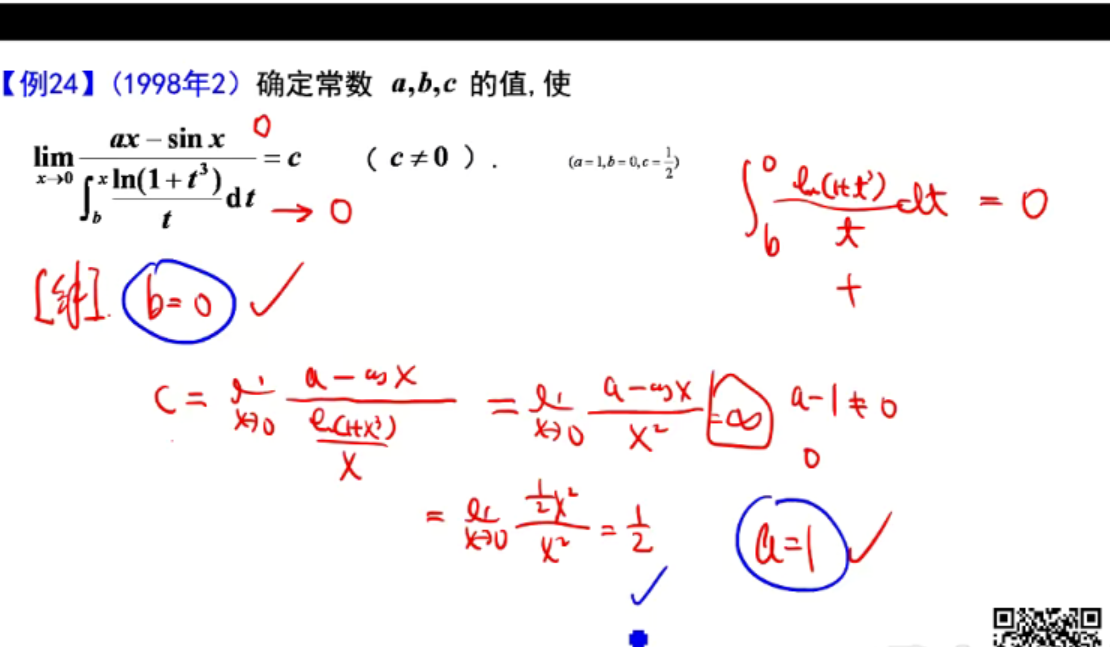 【例24】(1998年2) 确定常数 a,b,c 的值,使
lim x→0 (ax − sin x) / (∫_b^x ln(1+t³)/t dt) = c （c≠0）. (a=1,b=0,c=1/2)
0
→ 0
∫_b^0 ln(1+t³)/t dt = 0
+
[解]. b=0 ✓
c = lim x→0 (a − cos x) / (ln(1+x³)/x) = lim x→0 (a − cos x)/x² =∞ a−1≠0
0
= lim x→0 (1/2 x²)/x² = 1/2 a=1 ✓
✓